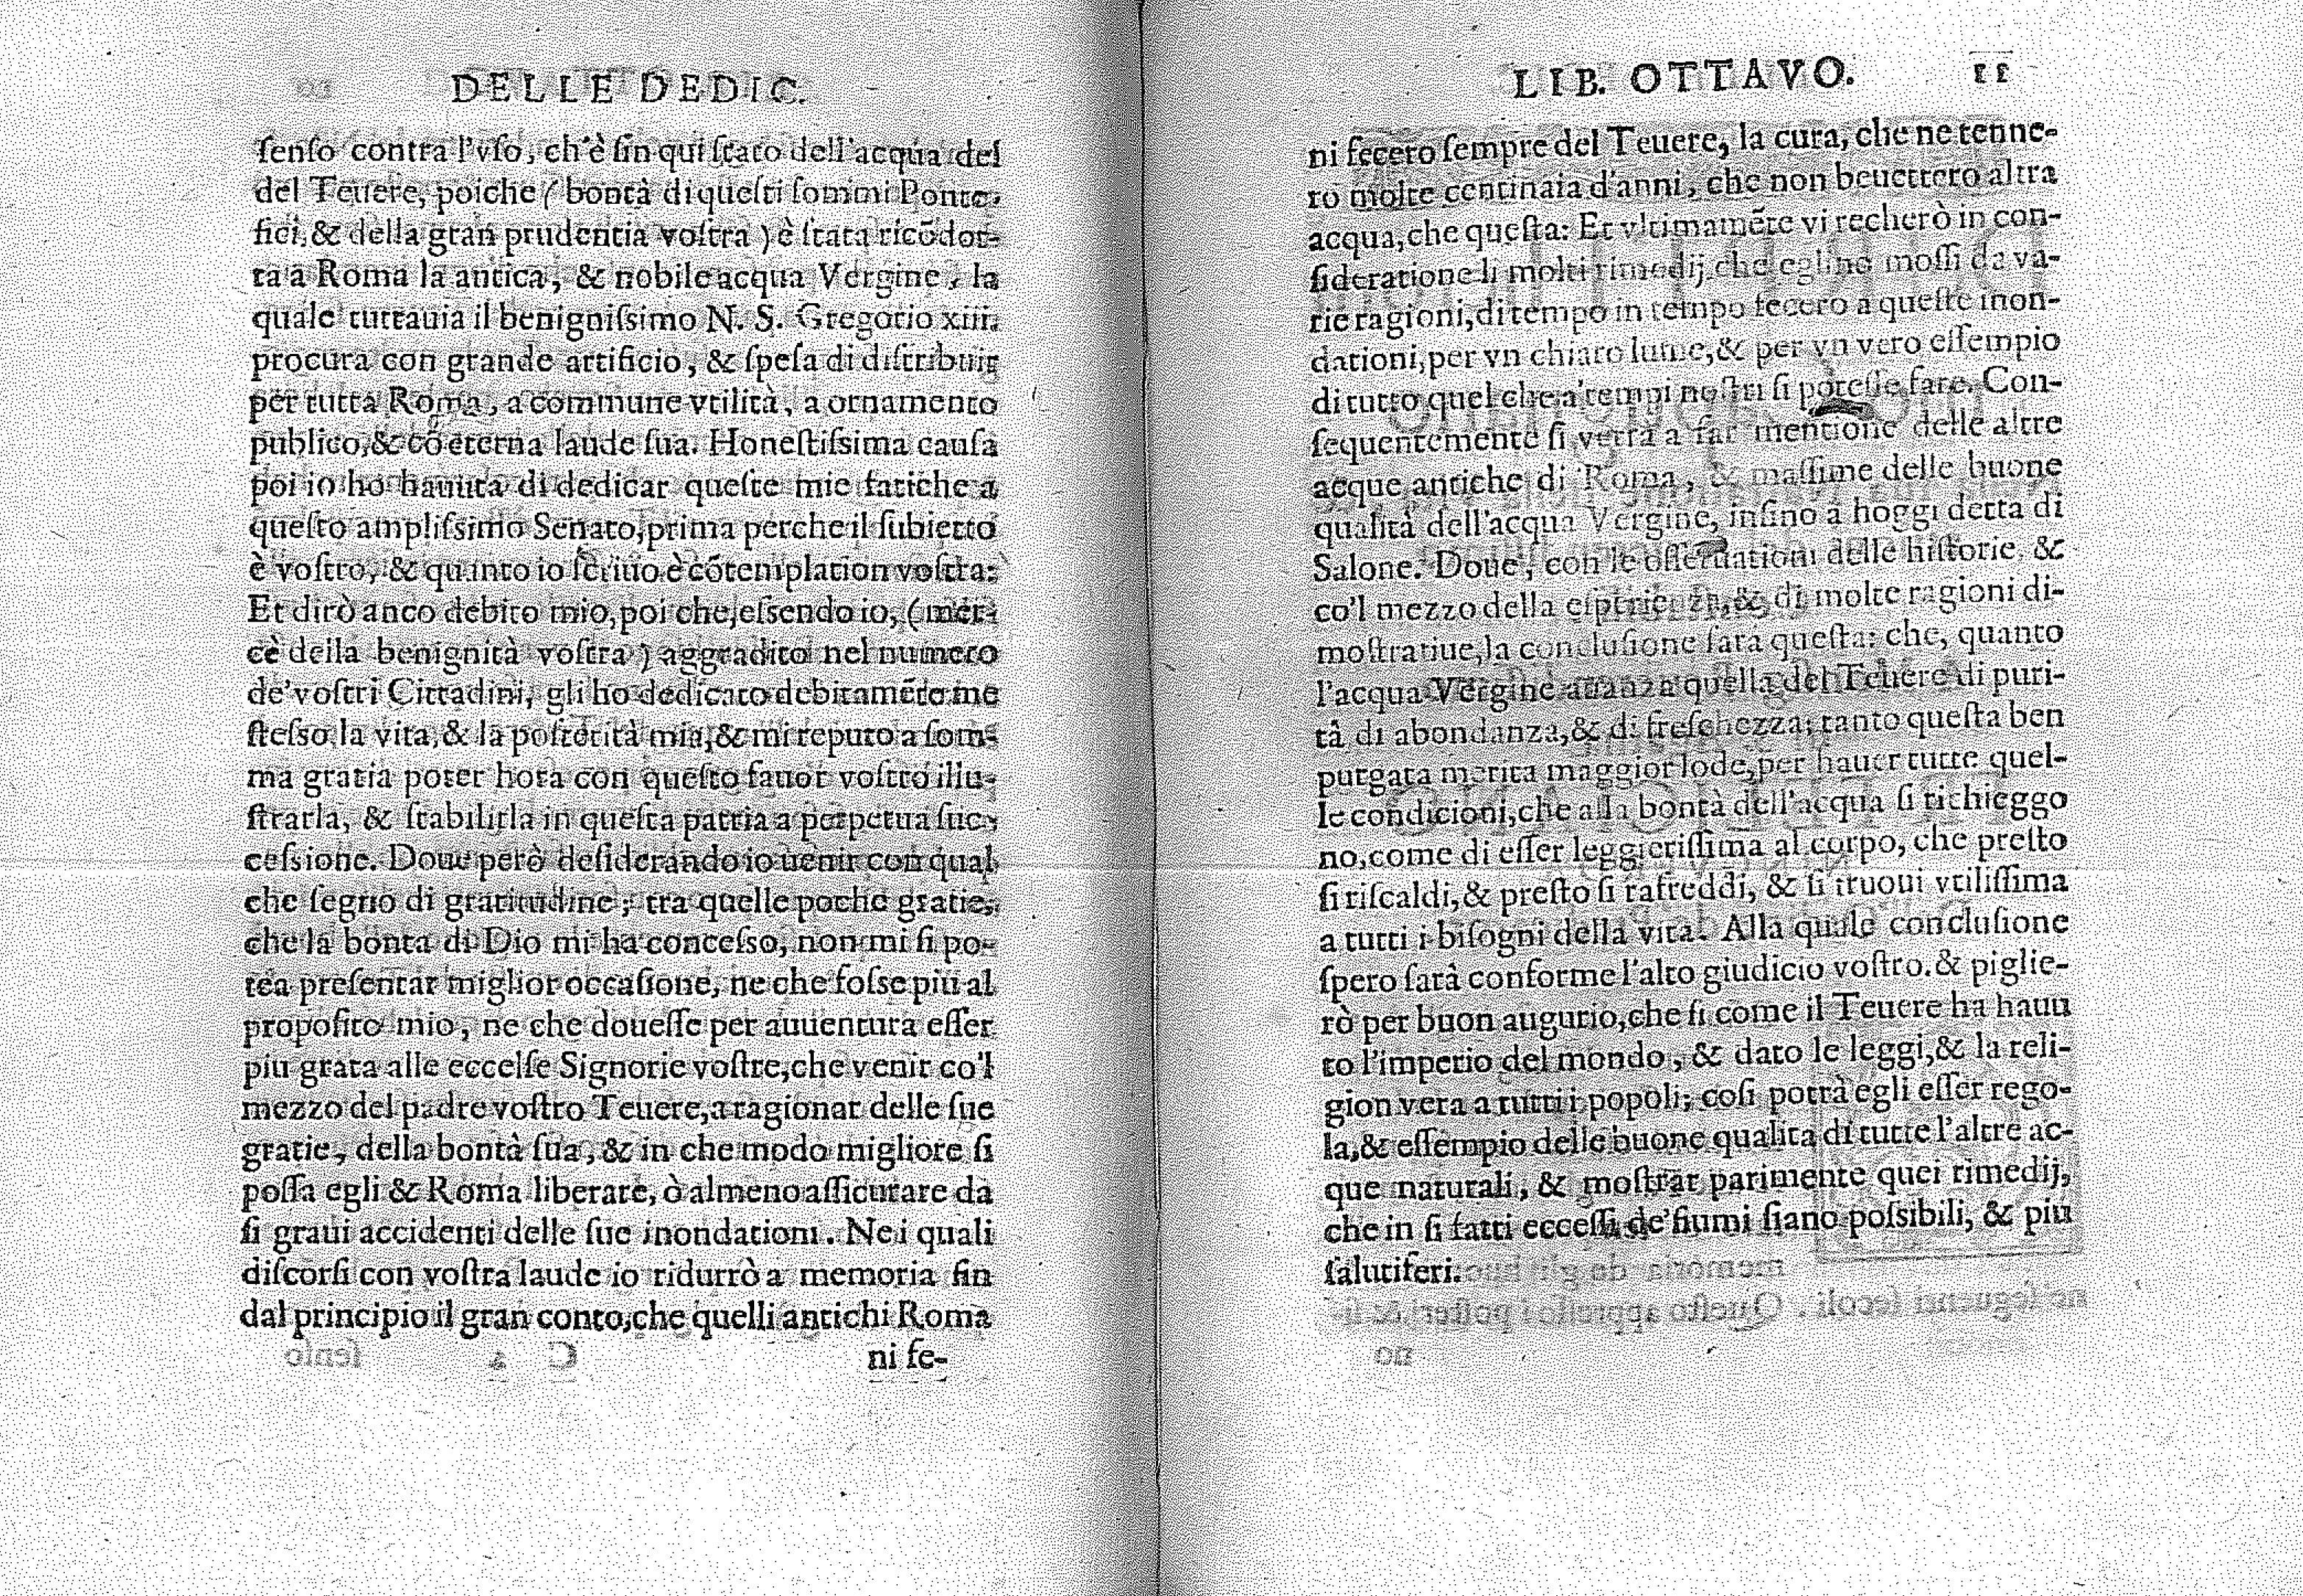 DELLE DEDIC.
ſenſo contra l'vſo, ch'è ſin qui ſtato dell'acqua del
del Teuere, poiche (bontà di queſti ſommi Ponte-
fici, & della gran prudentia voſtra) è ſtata ricõdot-
ta a Roma la antica, & nobile acqua Vergine, la
quale tuttauia il benigniſsimo N. S. Gregorio xiii.
procura con grande artificio, & ſpeſa di diſtribuir
per tutta Roma, a commune vtilità, a ornamento
publico, & cõ eterna laude ſua. Honeſtiſsima cauſa
poi io ho hauuta di dedicar queſte mie fatiche a
queſto ampliſsimo Senato, prima perche il ſubietto
è voſtro, & quanto io ſcriuo è cõtemplation voſtra:
Et dirò anco debito mio, poi che, eſsendo io, (mer-
cè della benignità voſtra) aggradito nel numero
de'voſtri Cittadini, gli ho dedicato debitamẽte me
ſteſso, la vita, & la poſterità mia, & mi reputo a ſom-
ma gratia poter hora con queſto fauor voſtro illu-
ſtrarla, & ſtabilirla in queſta patria a perpetua ſuc-
ceſsione. Doue però deſiderando io uenir con qual
che ſegno di gratitudine, tra quelle poche gratie,
che la bonta di Dio mi ha conceſso, non mi ſi po-
tea preſentar miglior occaſione, ne che foſse piu al
propoſito mio, ne che doueſſe per auuentura eſſer
piu grata alle eccelſe Signorie voſtre, che venir co'l
mezzo del padre voſtro Teuere, a ragionar delle ſue
gratie, della bontà ſua, & in che modo migliore ſi
poſſa egli & Roma liberare, ò almeno aſſicurare da
ſi graui accidenti delle ſue inondationi. Ne i quali
diſcorſi con voſtra laude io ridurrò a memoria fin
dal principio il gran conto, che quelli antichi Roma
ni fe-
LIB. OTTAVO. 11
ni fecero ſempre del Teuere, la cura, che ne tenne-
ro molte centinaia d'anni, che non beuettero altra
acqua, che queſta: Et vltimamẽte vi recherò in con-
ſideratione li molti rimedij che eglino moſſi da va-
rie ragioni, di tempo in tempo fecero a queſte inon-
dationi, per vn chiaro lume, & per vn vero eſſempio
di tutto quel che a'tempi noſtri ſi poteſſe fare. Con-
ſequentemente ſi verrà a far mentione delle altre
acque antiche di Roma, & maſſime delle buone
qualità dell'acqua Vergine, inſino á hoggi detta di
Salone. Doue, con le oſſeruationi delle hiſtorie, &
co'l mezzo della eſperienza, & di molte ragioni di-
moſtratiue, la concluſione ſara queſta: che, quanto
l'acqua Vergine auanza quella del Teuere di puri-
tâ di abondanza, & di freſchezza; tanto queſta ben
purgata merita maggior lode, per hauer tutte quel-
le condicioni, che alla bontà dell'acqua ſi richieggo
no, come di eſſer leggieriſſima al corpo, che preſto
ſi riſcaldi, & preſto ſi rafreddi, & ſi truoui vtiliſſima
a tutti i biſogni della vita. Alla quale concluſione
ſpero ſarà conforme l'alto giudicio voſtro. & piglie-
rò per buon augurio, che ſi come il Teuere ha hauu
to l'imperio del mondo, & dato le leggi, & la reli-
gion vera a tutti i popoli; coſi potrà egli eſſer rego-
la, & eſſempio delle buone qualita di tutte l'altre ac-
que naturali, & moſtrar parimente quei rimedij,
che in ſi fatti ecceſſi de'fiumi ſiano poſsibili, & più
ſalutiferi.